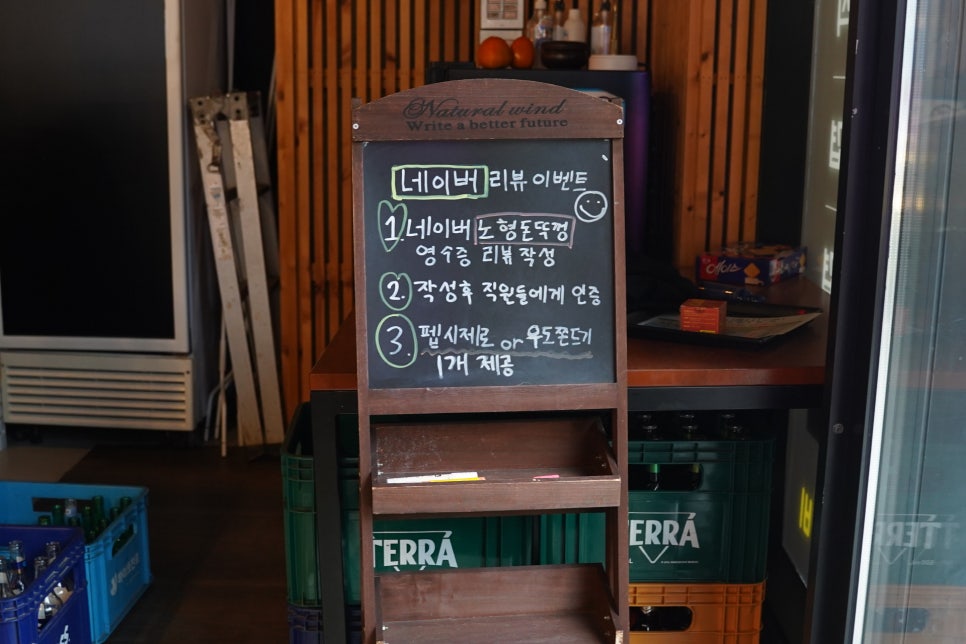 Natural wind
Write a better future
네이버 리뷰 이벤트
1. 네이버 노형돈뚝껑
영수증 리뷰 작성
2. 작성후 직원들에게 인증
3. 펩시제로 or 우도쫀드기
1개 제공
TERRA
TERRA
TERRA